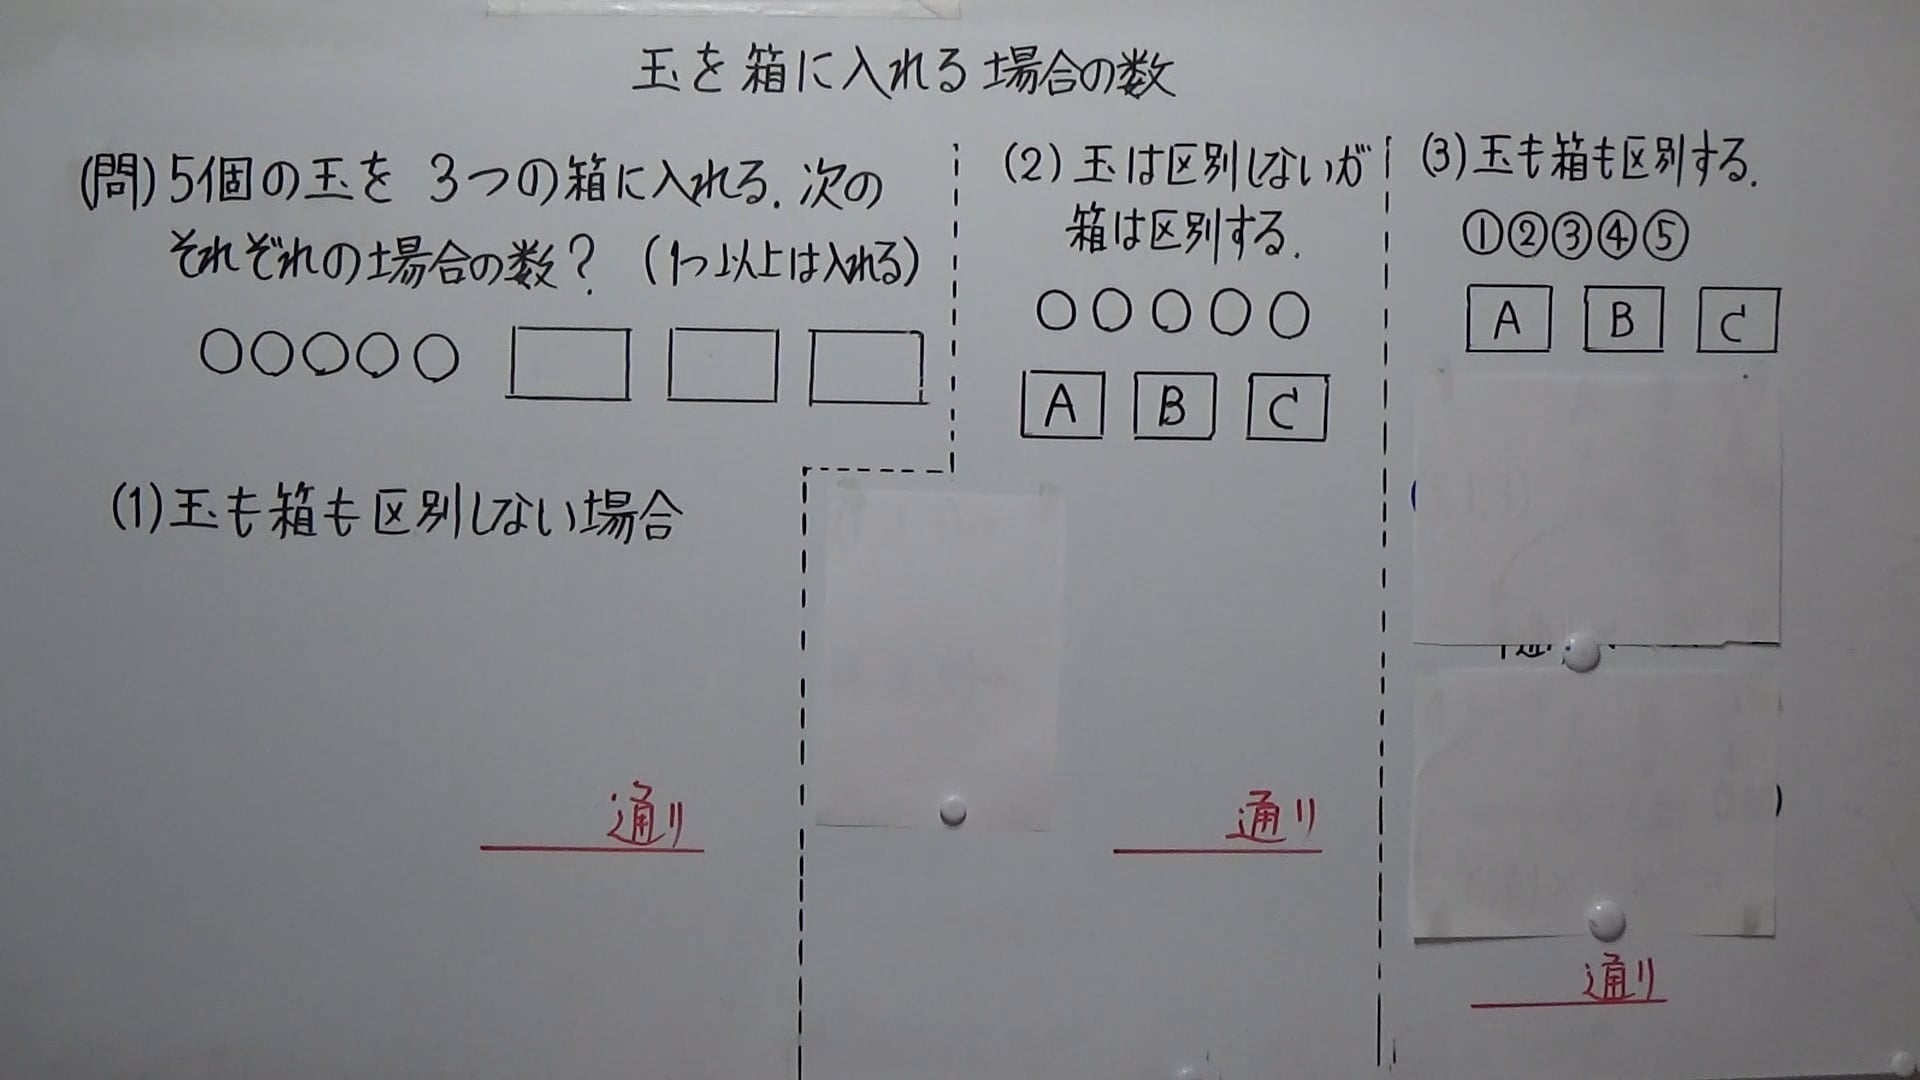 玉を箱に入れる場合の数
(問)5個の玉を 3つの箱に入れる.次の
それぞれの場合の数? (1つ以上は入れる)
(1)玉も箱も区別しない場合
通り
(2)玉は区別しないが
箱は区別する.
A B C
通り
(3)玉も箱も区別する.
①②③④⑤
A B C
通り